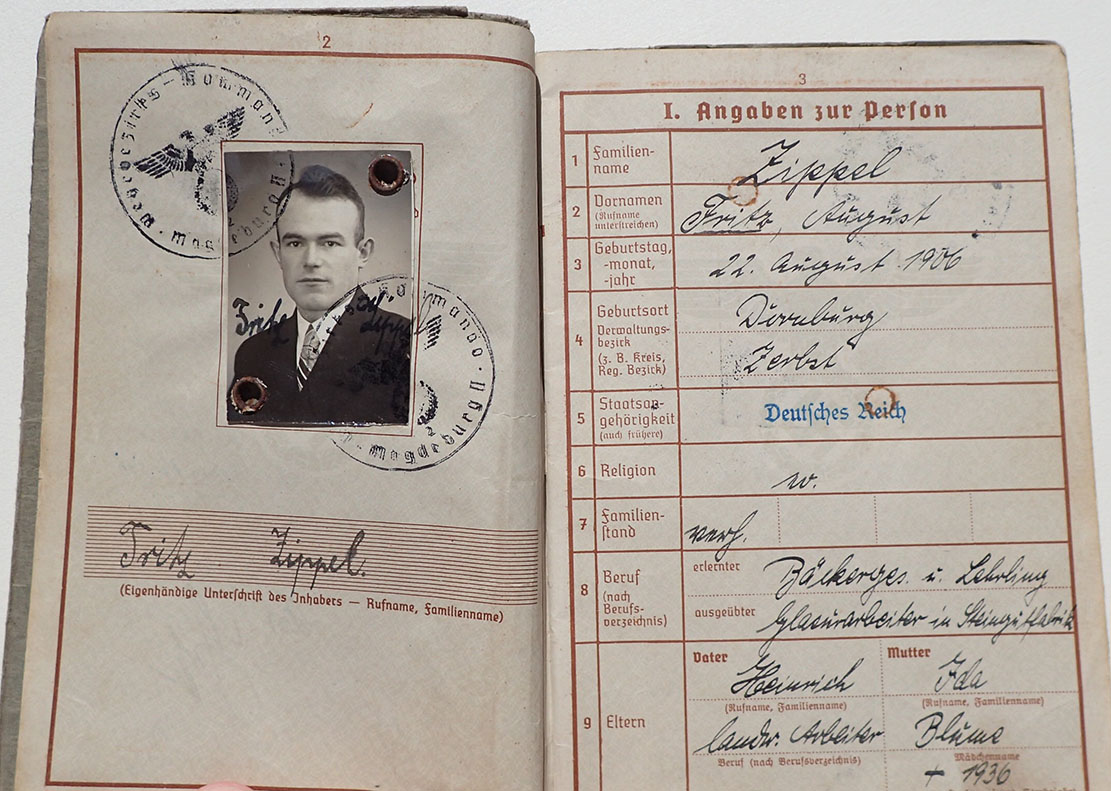 2
Wehrbezirks-Kommando
Magdeburg II
2
Fritz Zippel
Kommando II
Magdeburg
2
Fritz Zippel.
(Eigenhändige Unterschrift des Inhabers — Rufname, Familienname)
3
I. Angaben zur Person
1 Familien-
name
Zippel
2 Vornamen
(Rufname
unterstreichen)
Fritz, August
3 Geburtstag,
-monat,
-jahr
22. August 1906
4 Geburtsort
Verwaltungs-
bezirk
(z. B. Kreis,
Reg. Bezirk)
Dornburg
Zerbst
5 Staatsan-
gehörigkeit
(auch frühere)
Deutsches Reich
6 Religion
ev.
7 Familien-
stand
verh.
8 Beruf
(nach
Berufs-
verzeichnis)
erlernter
Bäckerges. u. Lehrling
ausgeübter
Glasurarbeiter in Steingutfabrik
9 Eltern
Vater
Heinrich
(Rufname, Familienname)
landw. Arbeiter
Beruf (nach Berufsverzeichnis)
Mutter
Ida
(Rufname, Familienname)
Blume
Mädchenname
+ 1936